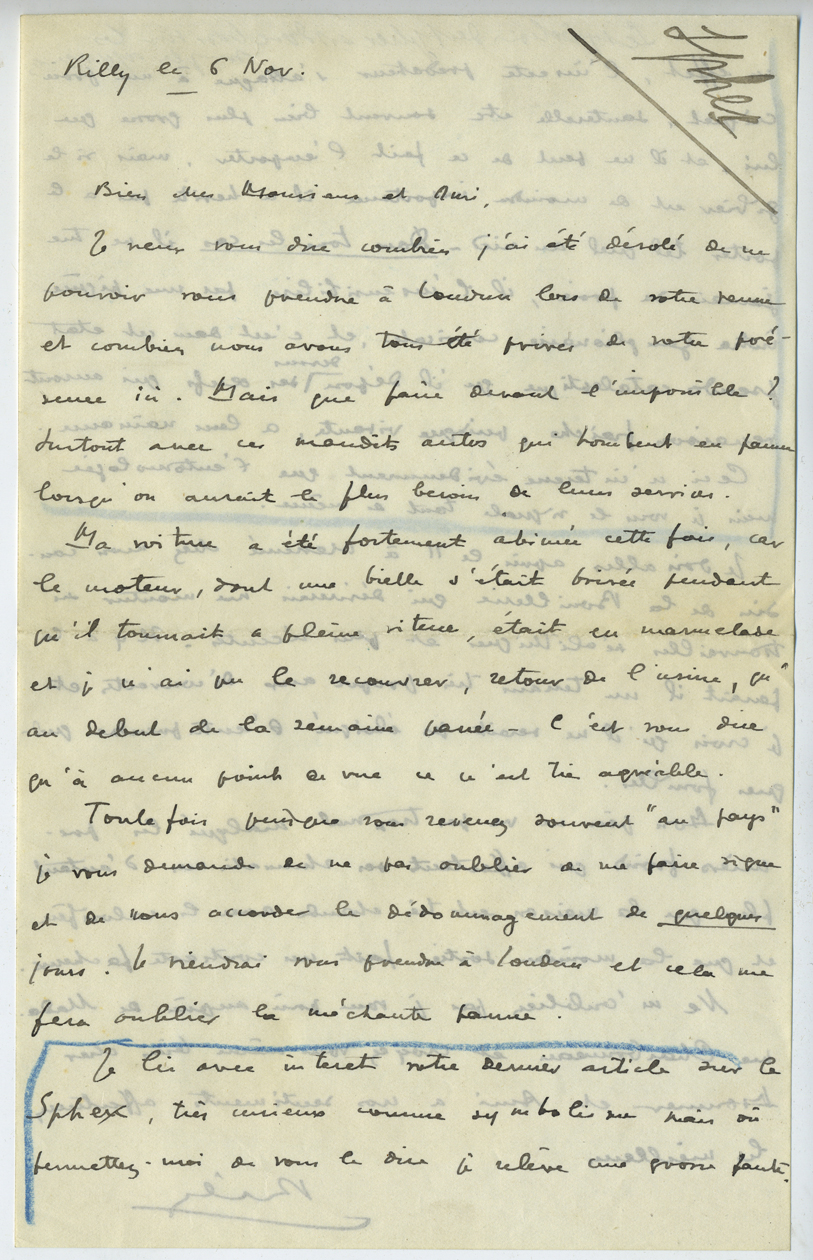 Sphex
Rilly le 6 Nov.
Bien cher Monsieur et Ami,
Je veux vous dire combien j'ai été désolé de ne
pouvoir vous prendre à Loudun lors de votre venue
et combien nous avons tous été privés de votre pré-
sence ici. Mais que faire devant l'impossible ?
Surtout avec ces maudits autos qui tombent en panne
lorsqu'on aurait le plus besoin de leurs services.
Ma voiture a été fortement abimée cette fois, car
le moteur, dont une bielle s'était brisée pendant
qu'il tournait a pleine vitesse, était en marmelade
et je n'ai pu le recouvrer, retour de l'usine, qu'
au debut de la semaine passée - C'est vous dire
qu'à aucun point de vue ce n'est très agréable.
Toutefois puisque vous revenez souvent "au pays"
je vous demande de ne pas oublier de me faire signe
et de nous accorder le dédommagement de quelques
jours. Je viendrai vous prendre à Loudun et cela me
fera oublier la méchante panne.
Je lis avec interet votre dernier article sur le
Sphex, très curieux comme symbolisme mais où
permettez-moi de vous le dire je relève une grosse faute.